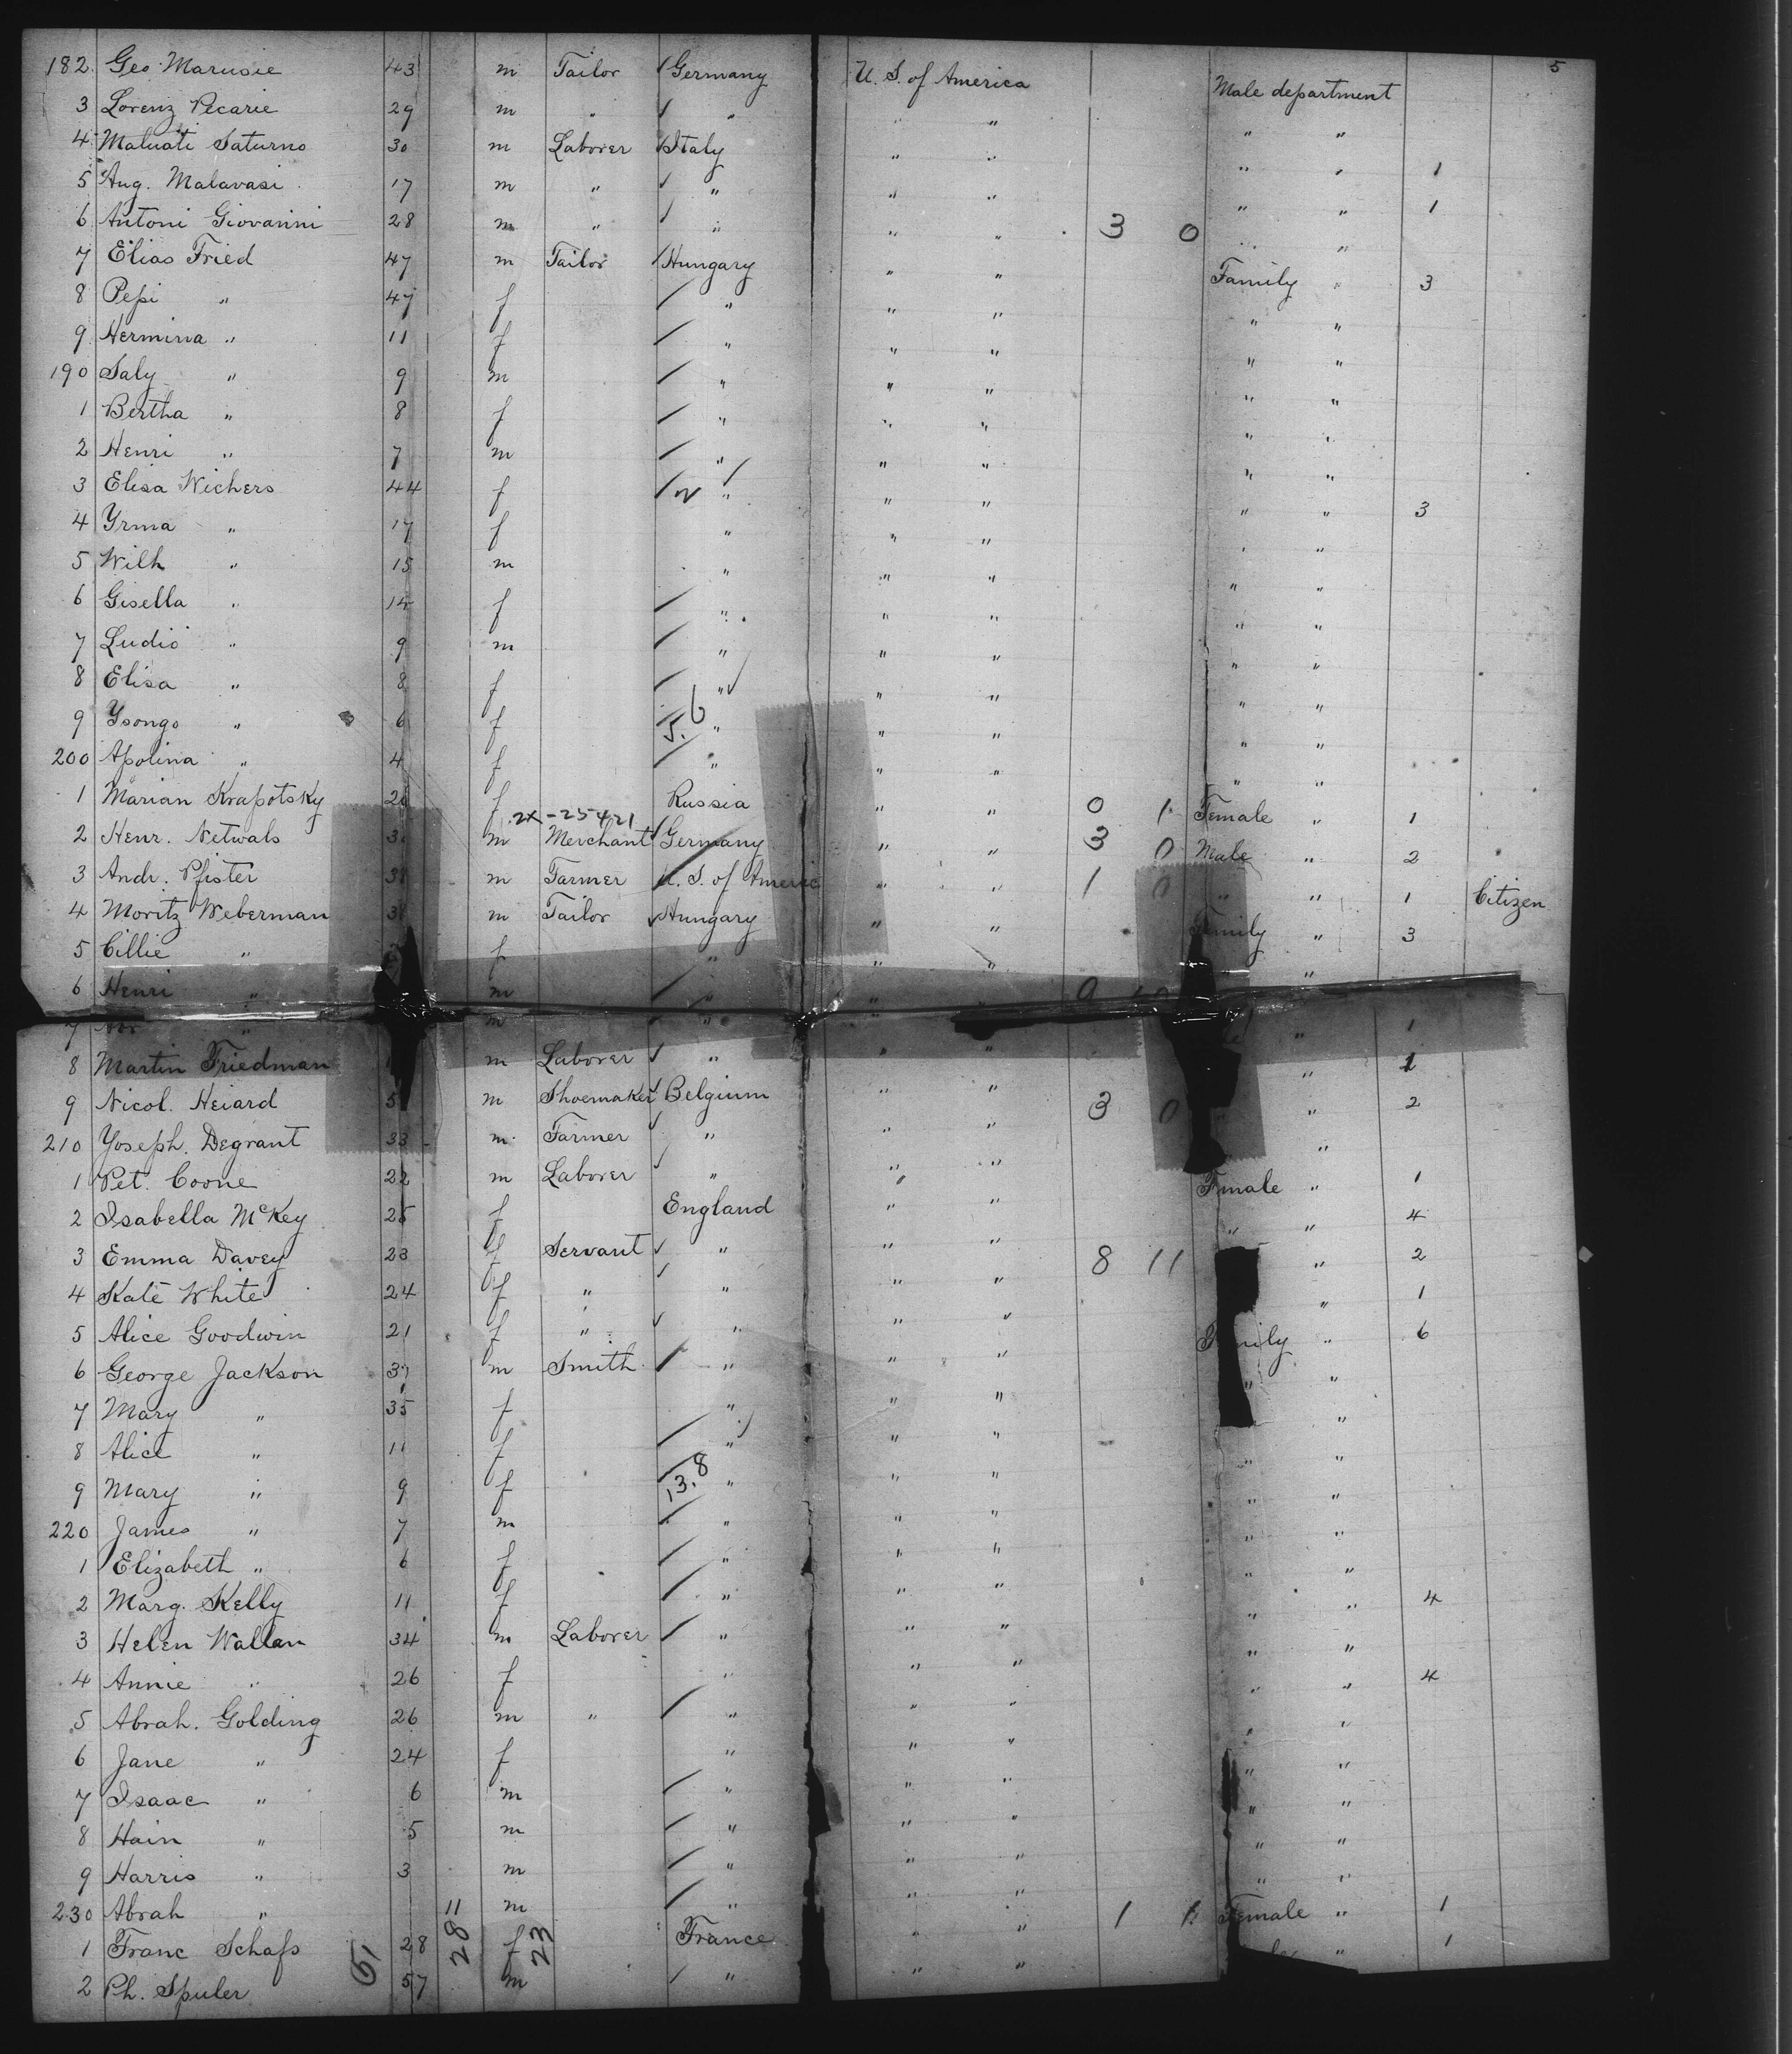 5
182 Geo. Marusie 43 m Tailor Germany U. S. of America Male department
3 Lorenz Pecarie 29 m " " " " " "
4 Maluati Saturno 30 m Laborer Italy " " " " 1
5 Aug. Malavasi 17 m " " " " " " 1
6 Antoni Giovanini 28 m " " " " 3 0 " "
7 Elias Fried 47 m Tailor Hungary " " Family " 3
8 Pepi " 47 f " " " " "
9 Hermina " 11 f " " " " "
190 Saly " 9 m " " " " "
1 Bertha " 8 f " " " " "
2 Henri " 7 m " " " " "
3 Elisa Wichers 44 f " " " " " 3
4 Yrma " 17 f " " " " "
5 Wilh " 15 m " " " " "
6 Gisella " 14 f " " " " "
7 Ludio " 9 m " " " " "
8 Elisa " 8 f " " " " "
9 Ysongo " 6 f 5. 6 " " " " "
200 Apolina " 4 f " " " " "
1 Marian Krapotsky f Russia " " 0 1 Female " 1
2X-25421
2 Henr. Netwals m Merchant Germany " " 3 0 Male " 2
3 Andr. Pfister m Farmer U. S. of America " " 1 0 " " 1 Citizen
4 Moritz Weberman m Tailor Hungary " " Family " 3
5 Cillie " f " " " "
6 Henri " m " " "
7 " m " " 1
8 Martin Friedman m Laborer " " " " 1
9 Nicol. Heiard m Shoemaker Belgium " " 3 0 " 2
210 Yoseph. Degrant 33 m Farmer " " " "
1 Pet. Coone 22 m Laborer " " " Female " 1
2 Isabella McKey 25 f England " " " " 4
3 Emma Davey 23 f Servant " " " 8 11 " 2
4 Kate White 24 f " " " " " 1
5 Alice Goodwin 21 f " " " " Family " 6
6 George Jackson m Smith " " " " "
7 Mary " 35 f " " " "
8 Alice " 11 f " " " " "
9 Mary " 9 f 13.8 " " " " "
220 James " 7 m " " " " "
1 Elizabeth " 6 f " " " " "
2 Marg. Kelly 11 f " " " " " 4
3 Helen Wallan 34 m Laborer " " " " "
4 Annie " 26 f " " " " " 4
5 Abrah. Golding 26 m " " " " " "
6 Jane " 24 f " " " " "
7 Isaac " 6 m " " " " "
8 Hain " 5 m " " " " "
9 Harris " 3 m " " " " "
230 Abrah " 11 m " " " 1 1 Female " 1
1 Franc Schafs 28 f France " " " 1
2 Ph. Spuler 57 m " " "
28 23